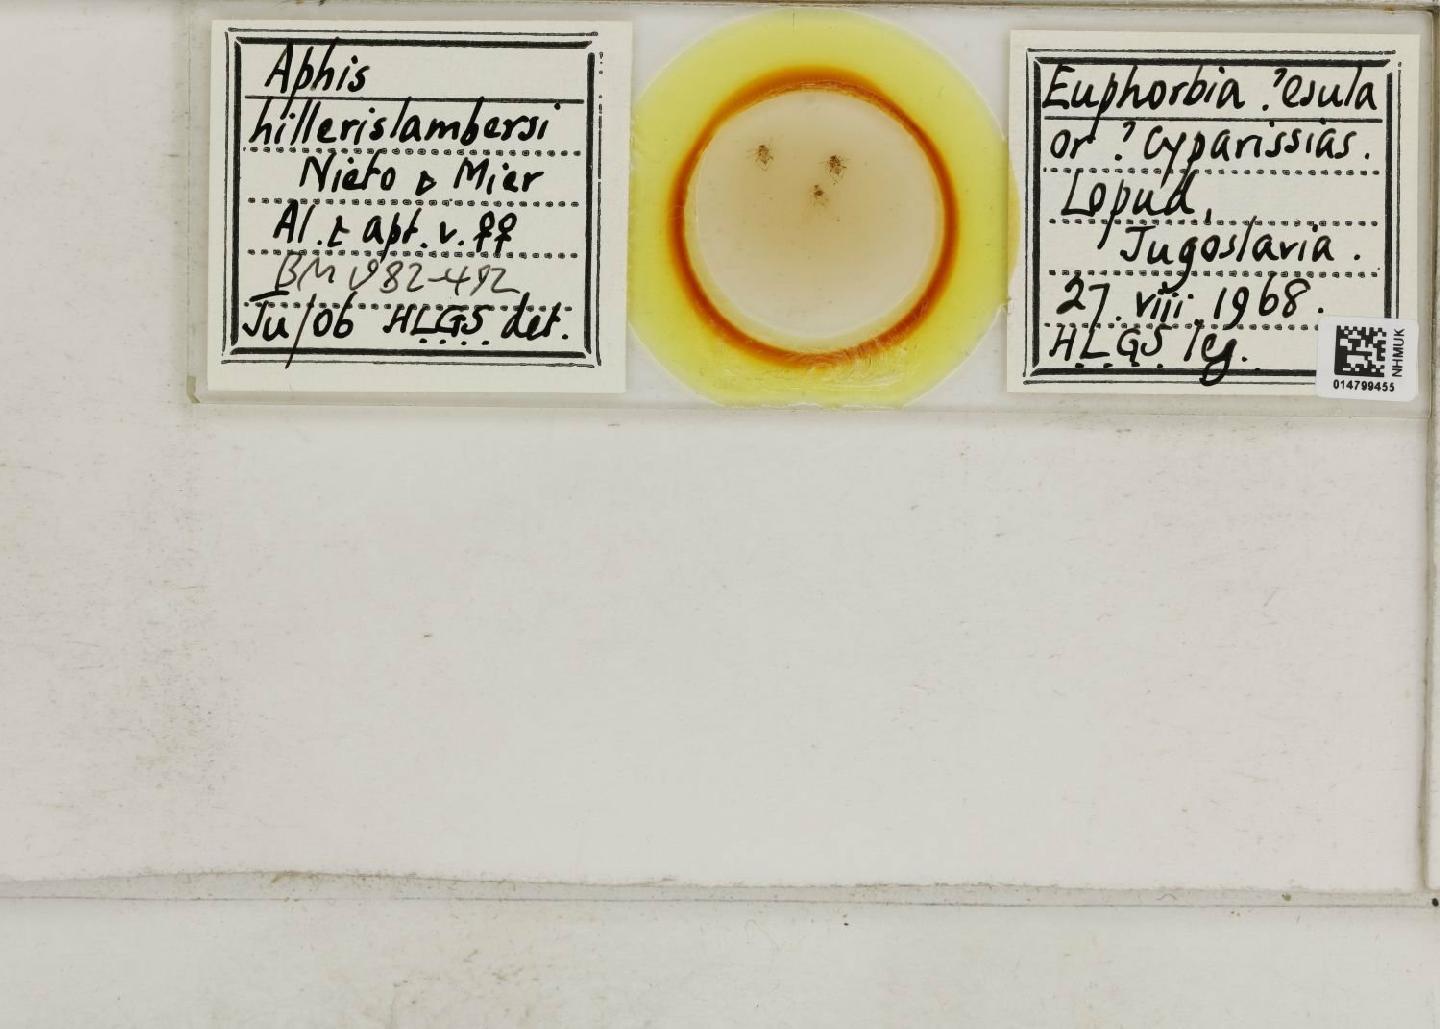 Aphis
hillerislambersi
Nieto & Mier
Al. & apt. v. ♀♀
BM 1982-492
Ju/06 HLGS det.
Euphorbia ?esula
or ? cyparissias.
Lopud,
Jugoslavia.
27. viii. 1968.
HLGS leg.
NHMUK
014799455